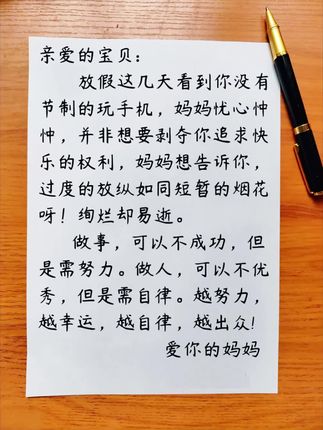 亲爱的宝贝：
放假这几天看到你没有
节制的玩手机，妈妈忧心忡
忡，并非想要剥夺你追求快
乐的权利，妈妈想告诉你，
过度的放纵如同短暂的烟花
呀！绚烂却易逝。
做事，可以不成功，但
是需努力。做人，可以不优
秀，但是需自律。越努力，
越幸运，越自律，越出众！
爱你的妈妈